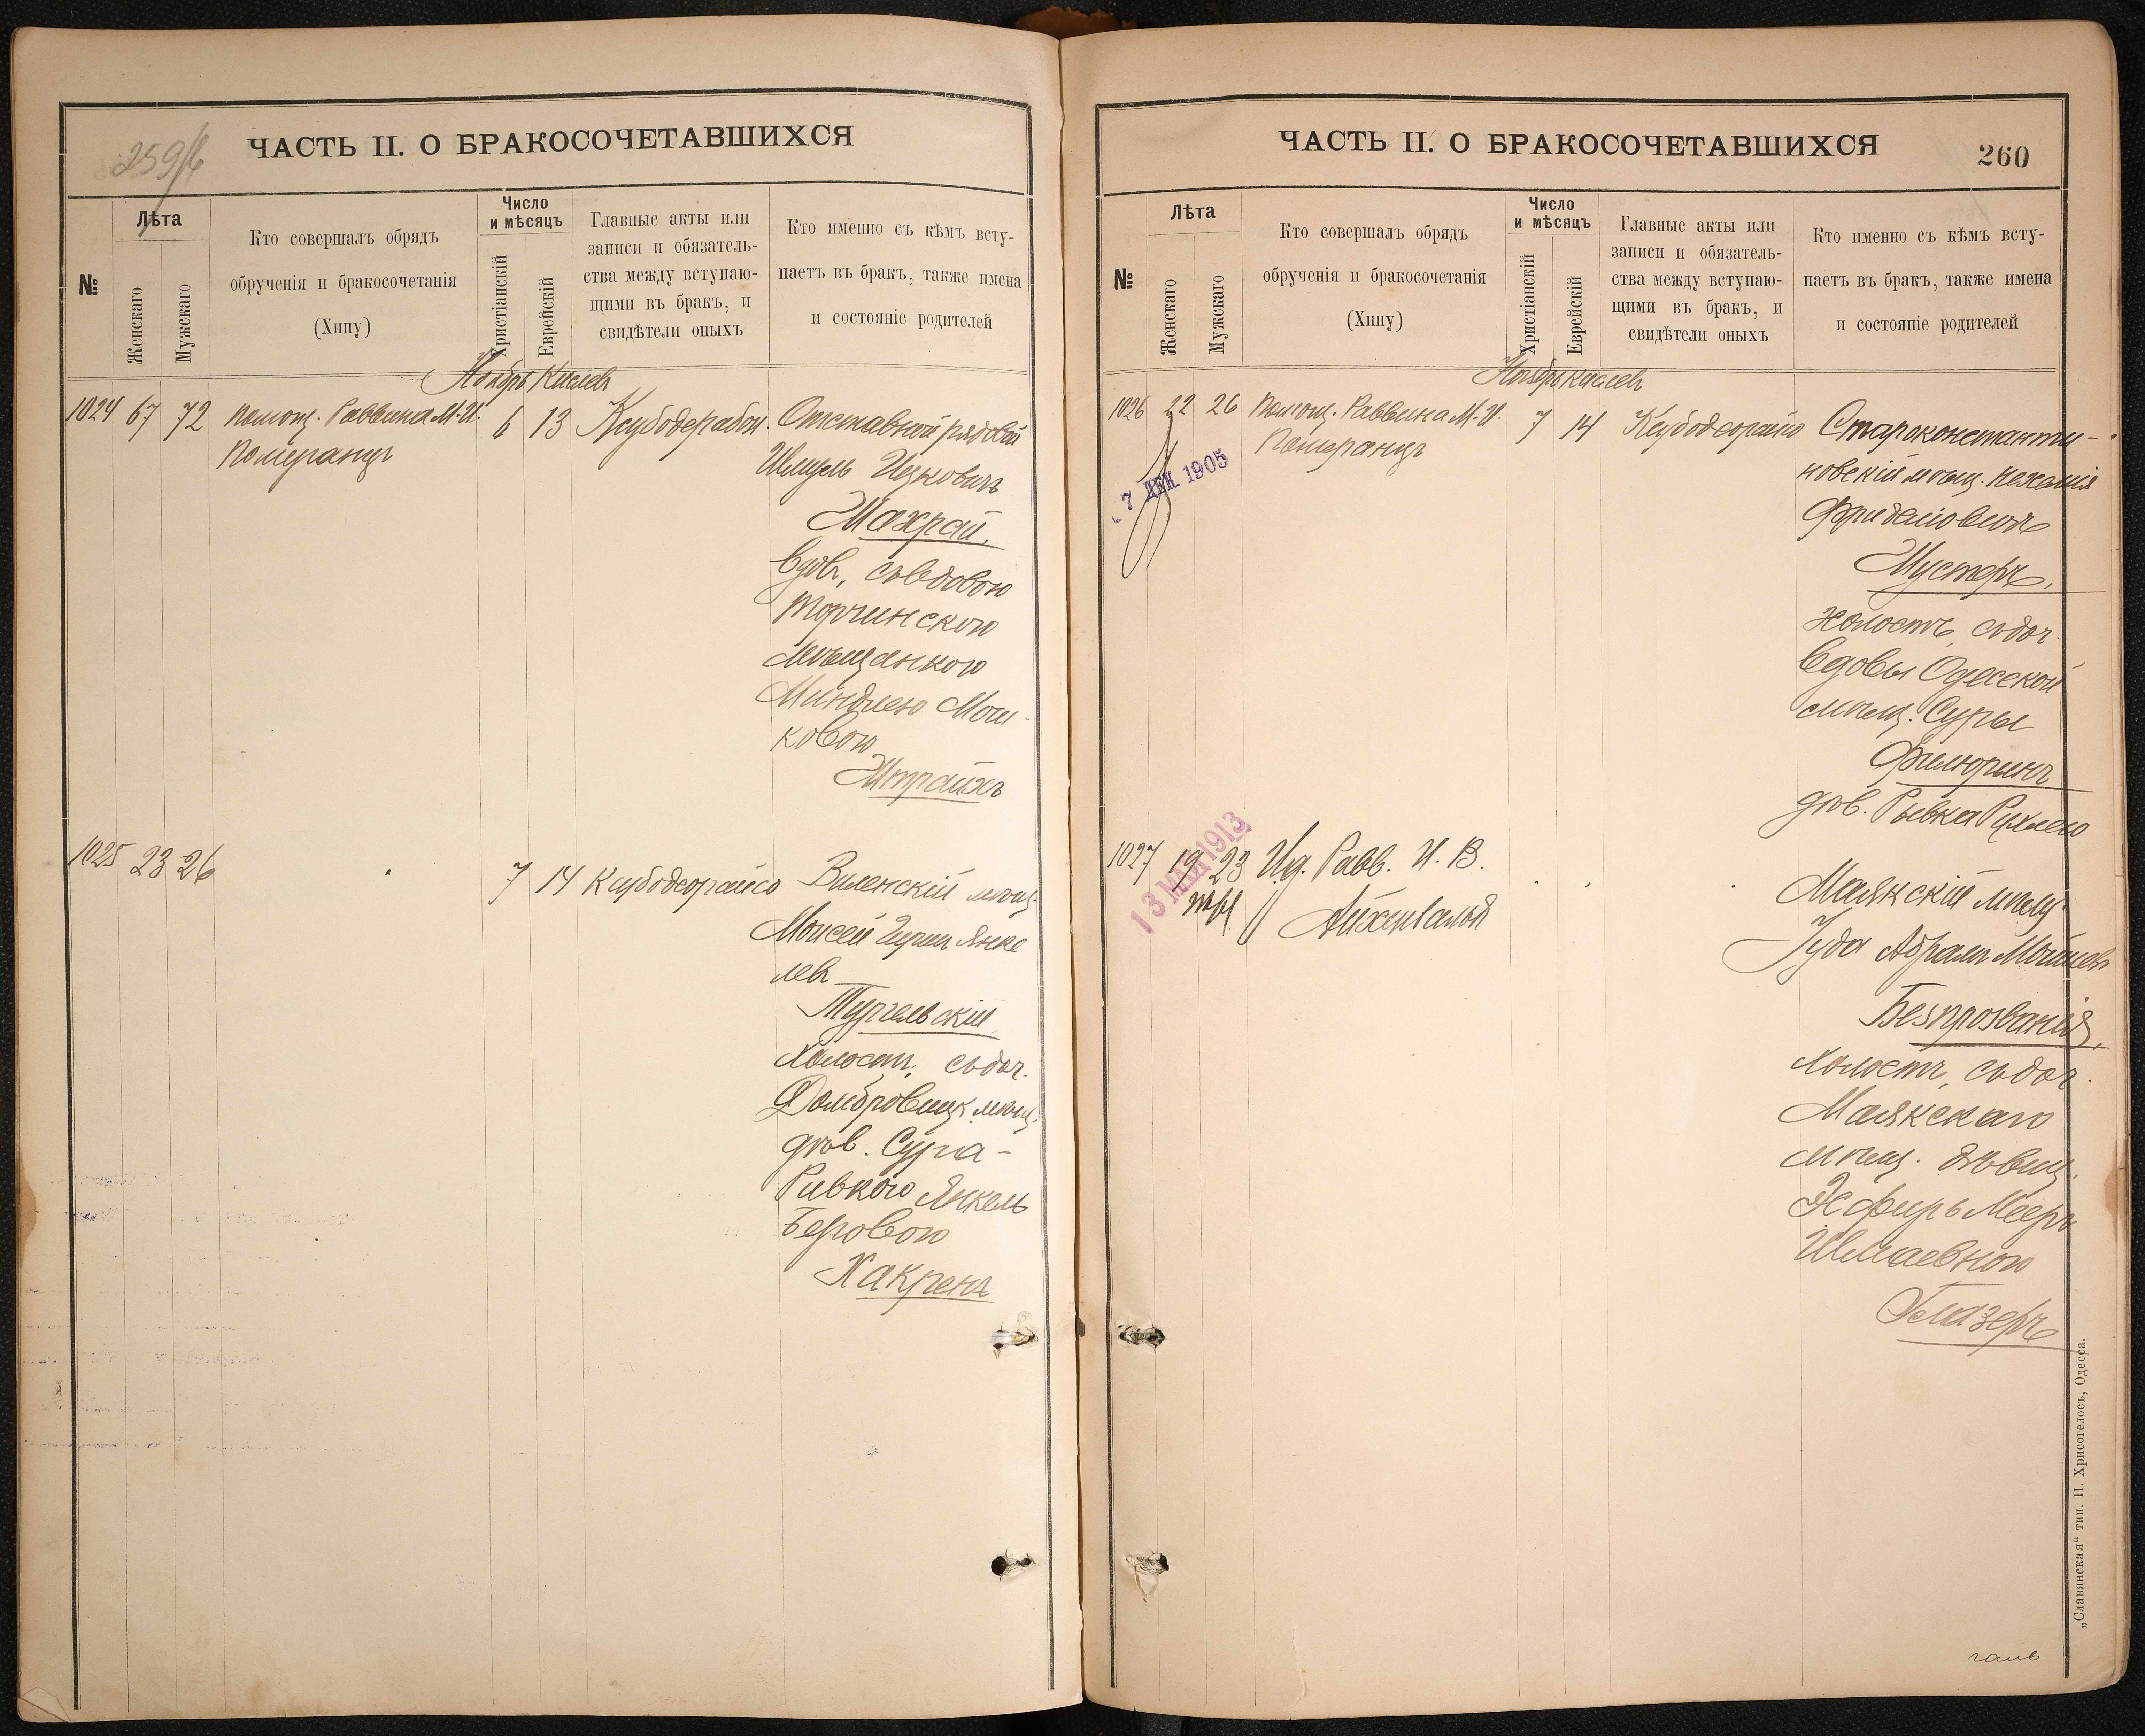 259/б
ЧАСТЬ II. О БРАКОСОЧЕТАВШИХСЯ
№
Лѣта
Женскаго
Мужскаго
Кто совершалъ обрядъ
обрученія и бракосочетанія
(Хипу)
Число
и мѣсяцъ
Христіанскій
Еврейскій
Главные акты или
записи и обязатель-
ства между вступаю-
щими въ бракъ, и
свидѣтели оныхъ
Кто именно съ кѣмъ всту-
паетъ въ бракъ, также имена
и состояніе родителей
Ноябрь Кислевъ
1024 67 72 Помощ. Раввина М. И. 6 13 Отставной рядовой
Померанцъ
Шмуль Ицковичъ
Махрай,
вдов, съ вдовою
Торчинскою
мѣщанкою
Миндлею Мош-
ковою
Штрайхъ
1025 23 26 7 14 Ксубодеорайсо Виленскій мѣщ.
Моисей Гершъ Янке
левъ
Тургельскій
холост, съ доч.
Домбровицк. мѣщ.
дѣв. Сура-
Ривкою Янкель
Беровою
Хакренъ
ЧАСТЬ II. О БРАКОСОЧЕТАВШИХСЯ
260
№
Лѣта
Женскаго
Мужскаго
Кто совершалъ обрядъ
обрученія и бракосочетанія
(Хипу)
Число
и мѣсяцъ
Христіанскій
Еврейскій
Главные акты или
записи и обязатель-
ства между вступаю-
щими въ бракъ, и
свидѣтели оныхъ
Кто именно съ кѣмъ всту-
паетъ въ бракъ, также имена
и состояніе родителей
Ноябрь Кислевъ
1026 22 26 Помощ. Раввина М. И. 7 14 Ксубодеорайсо Староконстанти-
Померанцъ
новскій мѣщ. Нехемія
7 ДЕК 1905
Шустеръ,
холостъ, съ доч.
вдовы Одесской
мѣщ. Суры
Филюринъ
дѣв. Рывка Рухлею
13 1913
1027 19 23 Ид. Равв. И. В.
Айхенвальд
Маякскій мѣщ.
Іуда Абрамъ Мойшевъ
Безпрозваній,
холостъ, съ доч.
Маякскаго
мѣщ. дѣвиц.
Эсфирь Меерь
Шмаевною
Глазеръ
„Славянская“ тип. Н. Хрисогелосъ, Одесса.